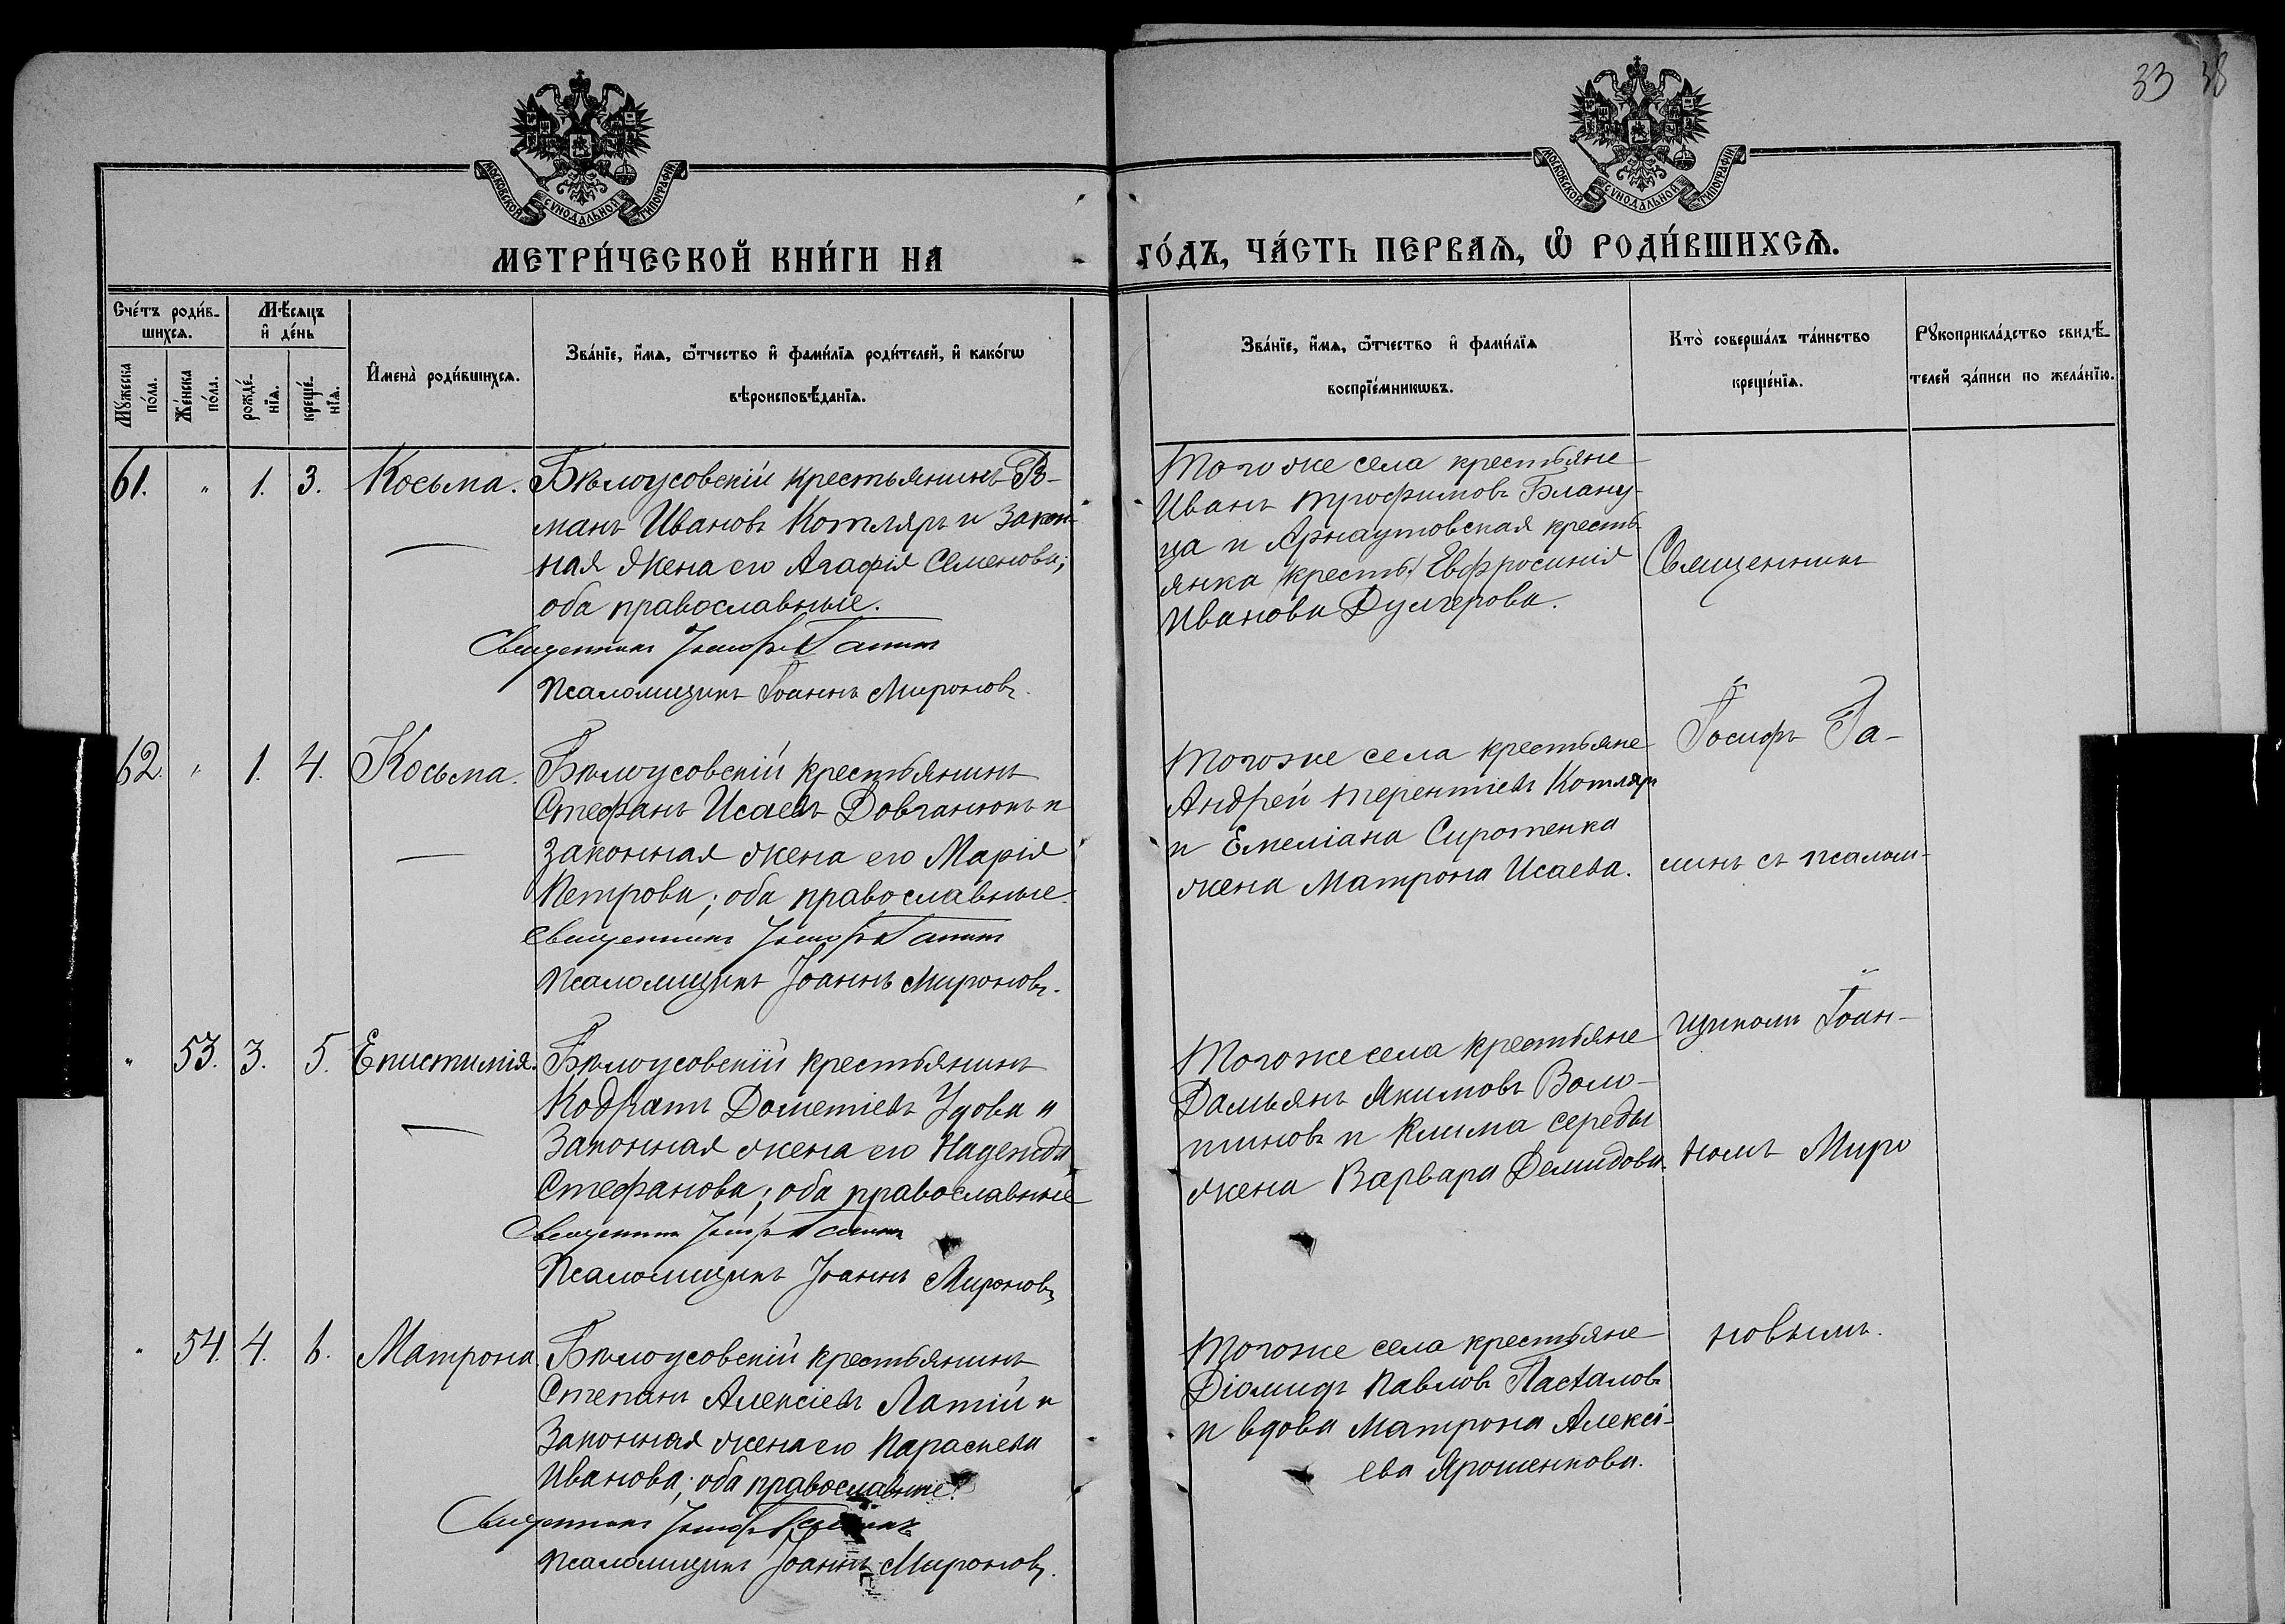 33 38
МОСКОВСКОЙ СѴНОДАЛЬНОЙ ТИПОГРАФІИ
МОСКОВСКОЙ СѴНОДАЛЬНОЙ ТИПОГРАФІИ
МЕТРИ́ЧЕСКОЙ КНИ́ГИ НА
ГО́ДЪ, ЧА́СТЬ ПЕРВАѦ, Ѡ҆ РОДИ́ВШИХСѦ.
Сче́тъ роди́в-
шихсѧ.
Мѣ́сѧцъ
и҆ де́нь
Мꙋ́жеска
по́ла.
Же́нска
по́ла.
рожде́-
нїѧ.
креще́-
нїѧ.
И҆мена̀ роди́вшихсѧ.
Зва́нїе, и҆́мѧ, ѻ҆́тчество и҆ фами́лїѧ роди́телей, и҆ како́гѡ
вѣроисповѣ́данїѧ.
Зва́нїе, и҆́мѧ, ѻ҆́тчество и҆ фами́лїѧ
воспрїе́мникѡвъ.
Кто̀ соверша́лъ та́инство
креще́нїѧ.
Рꙋкоприкла́дство свидѣ́-
телей за́писи по жела́нїю.
61. " 1. 3. Косьма.
Бѣлоусовскій крестьянинъ Ро-
манъ Ивановъ Котляръ и закон-
ная жена его Агафія Семенова;
оба православные.
Священникъ Іосифъ Галинъ
Псаломщикъ Іоаннъ Мироновъ.
Того же села крестьяне
Иванъ Трофимовъ Блану-
ца и Арнаутовская кресть-
янка (кресть) Евфросинія
Иванова Дулгерова.
Священникъ
62. " 1. 4. Косьма.
Бѣлоусовскій крестьянинъ
Стефанъ Исаевъ Довганюкъ и
законная жена его Марія
Петрова; оба православные.
Священникъ Іосифъ Галинъ
Псаломщикъ Іоаннъ Мироновъ.
Того же села крестьяне
Андрей Терентіевъ Котляръ
и Емеліана Сиротенка
жена Матрона Исаева.
Іосифъ Га-
линъ съ псалом-
" 53. 3. 5. Епистимія.
Бѣлоусовскій крестьянинъ
Кодратъ Дометіевъ Удова и
Законная жена его Надежда
Стефанова; оба православные
Священникъ Іосифъ Галинъ
Псаломщикъ Іоаннъ Мироновъ
Того же села крестьяне
Дамьянъ Якимовъ Воло-
тиновъ и Клима Середы
жена Варвара Демидова.
щикомъ Іоан-
номъ Миро
" 54. 4. 6. Матрона
Бѣлоусовскій крестьянинъ
Степанъ Алексіевъ Латій и
Законная жена его Параскева
Иванова; оба православные.
Священникъ Іосифъ Галинъ
Псаломщикъ Іоаннъ Мироновъ.
Того же села крестьяне
Діомидъ Павловъ Пасталовъ
и вдова Матрона Алексі-
ева Ярошенкова.
новымъ.